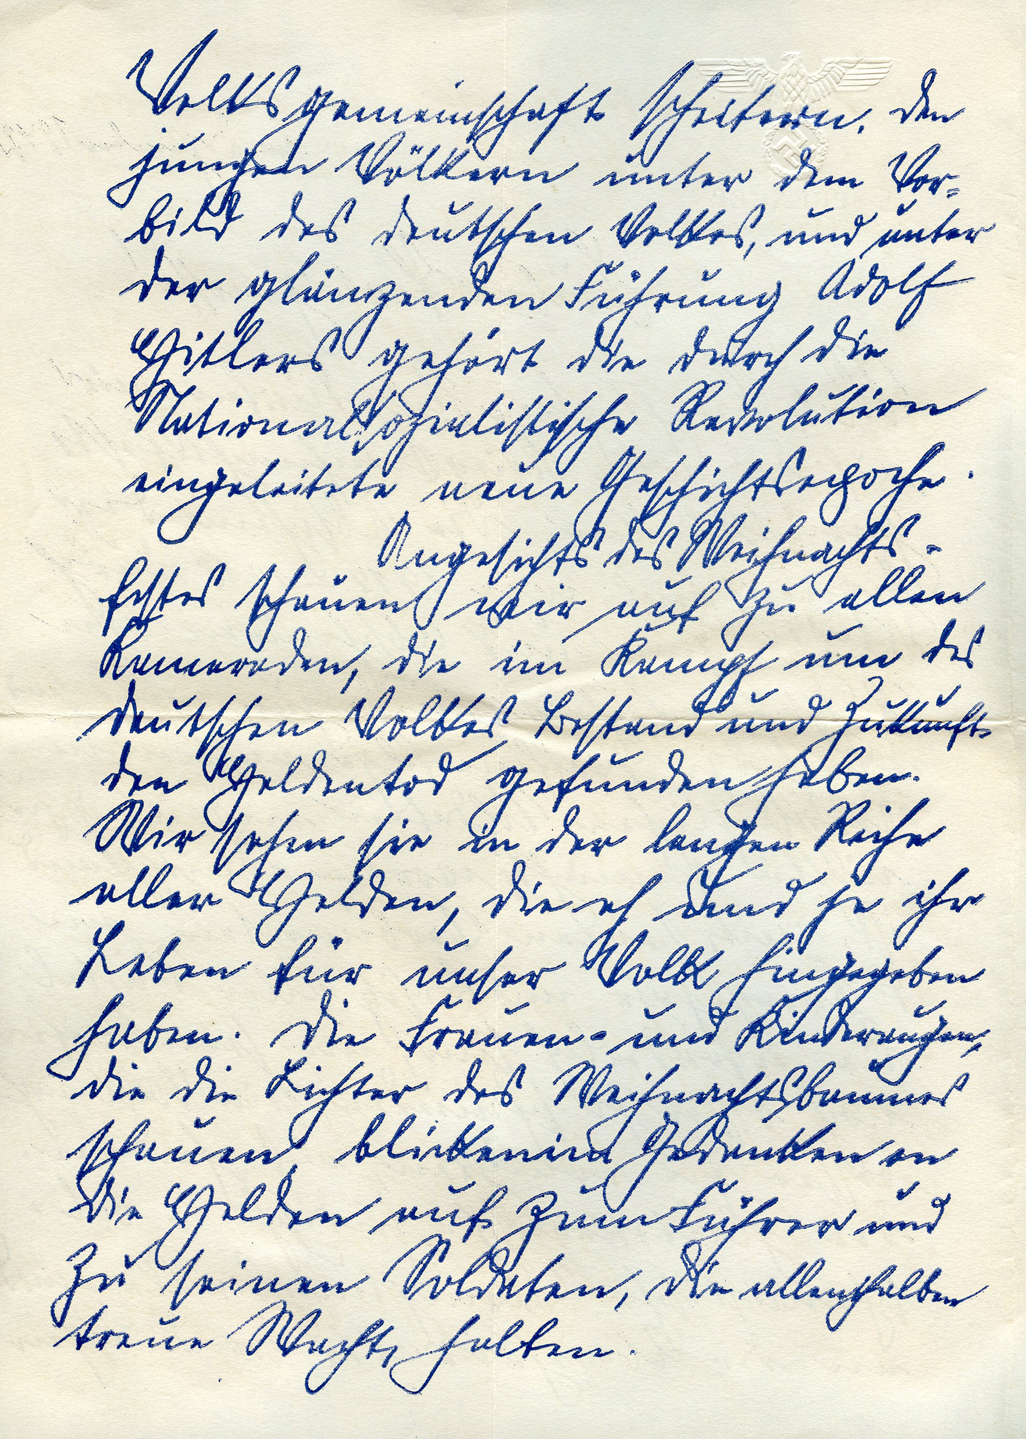 Volksgemeinschaft scheitern. Den
jungen Völkern unter dem Vor-
bild des deutschen Volkes, und unter
der glänzenden Führung Adolf
Hitlers gehört die durch die
Nationalsozialistische Revolution
eingeleitete neue Geschichtsepoche.
Angesichts des Weihnachts-
festes schauen wir auf zu allen
Kameraden, die im Kampf um des
deutschen Volkes Bestand und Zukunft
den Heldentod gefunden haben.
Wir sehen sie in der langen Reihe
aller Helden, die eh und je ihr
Leben für unser Volk hingegeben
haben. Die Frauen- und Kinderaugen,
die die Lichter des Weihnachtsbaumes
schauen, blicken im Gedanken an
die Helden auf zum Führer und
zu seinen Soldaten, die allenthalben
treue Wacht halten.